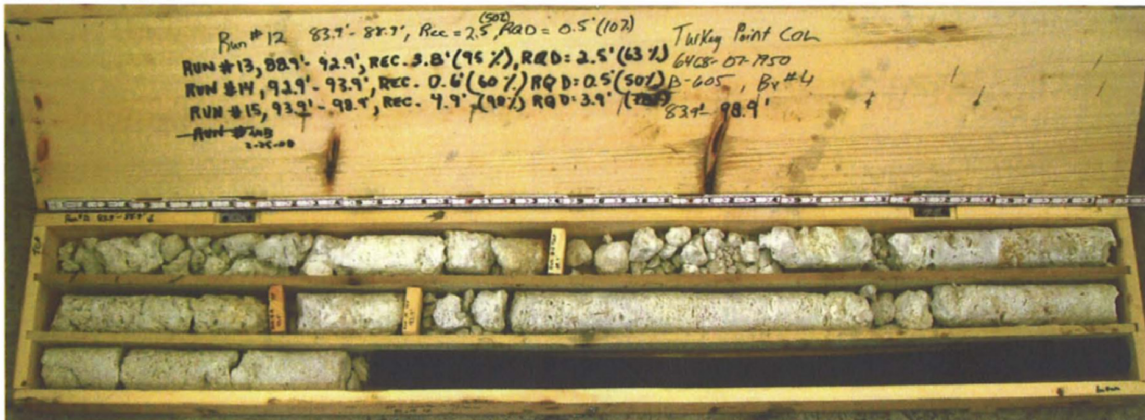 Run #12 83.9'- 88.9', Rec = 2.5 (50%), RQD = 0.5' (10%)
RUN #13, 88.9'- 92.9', REC. 3.8' (95%), RQD: 2.5' (63%)
RUN #14, 92.9'- 93.9', REC. 0.6' (60%) RQD: 0.5' (50%)
RUN #15, 93.9'- 98.9', REC. 4.9' (98%) RQD: 3.9'
RUN
2-25-08
Turkey Point COL
6468-07-1950
B-605, Bx #4
83.9'- 98.9'